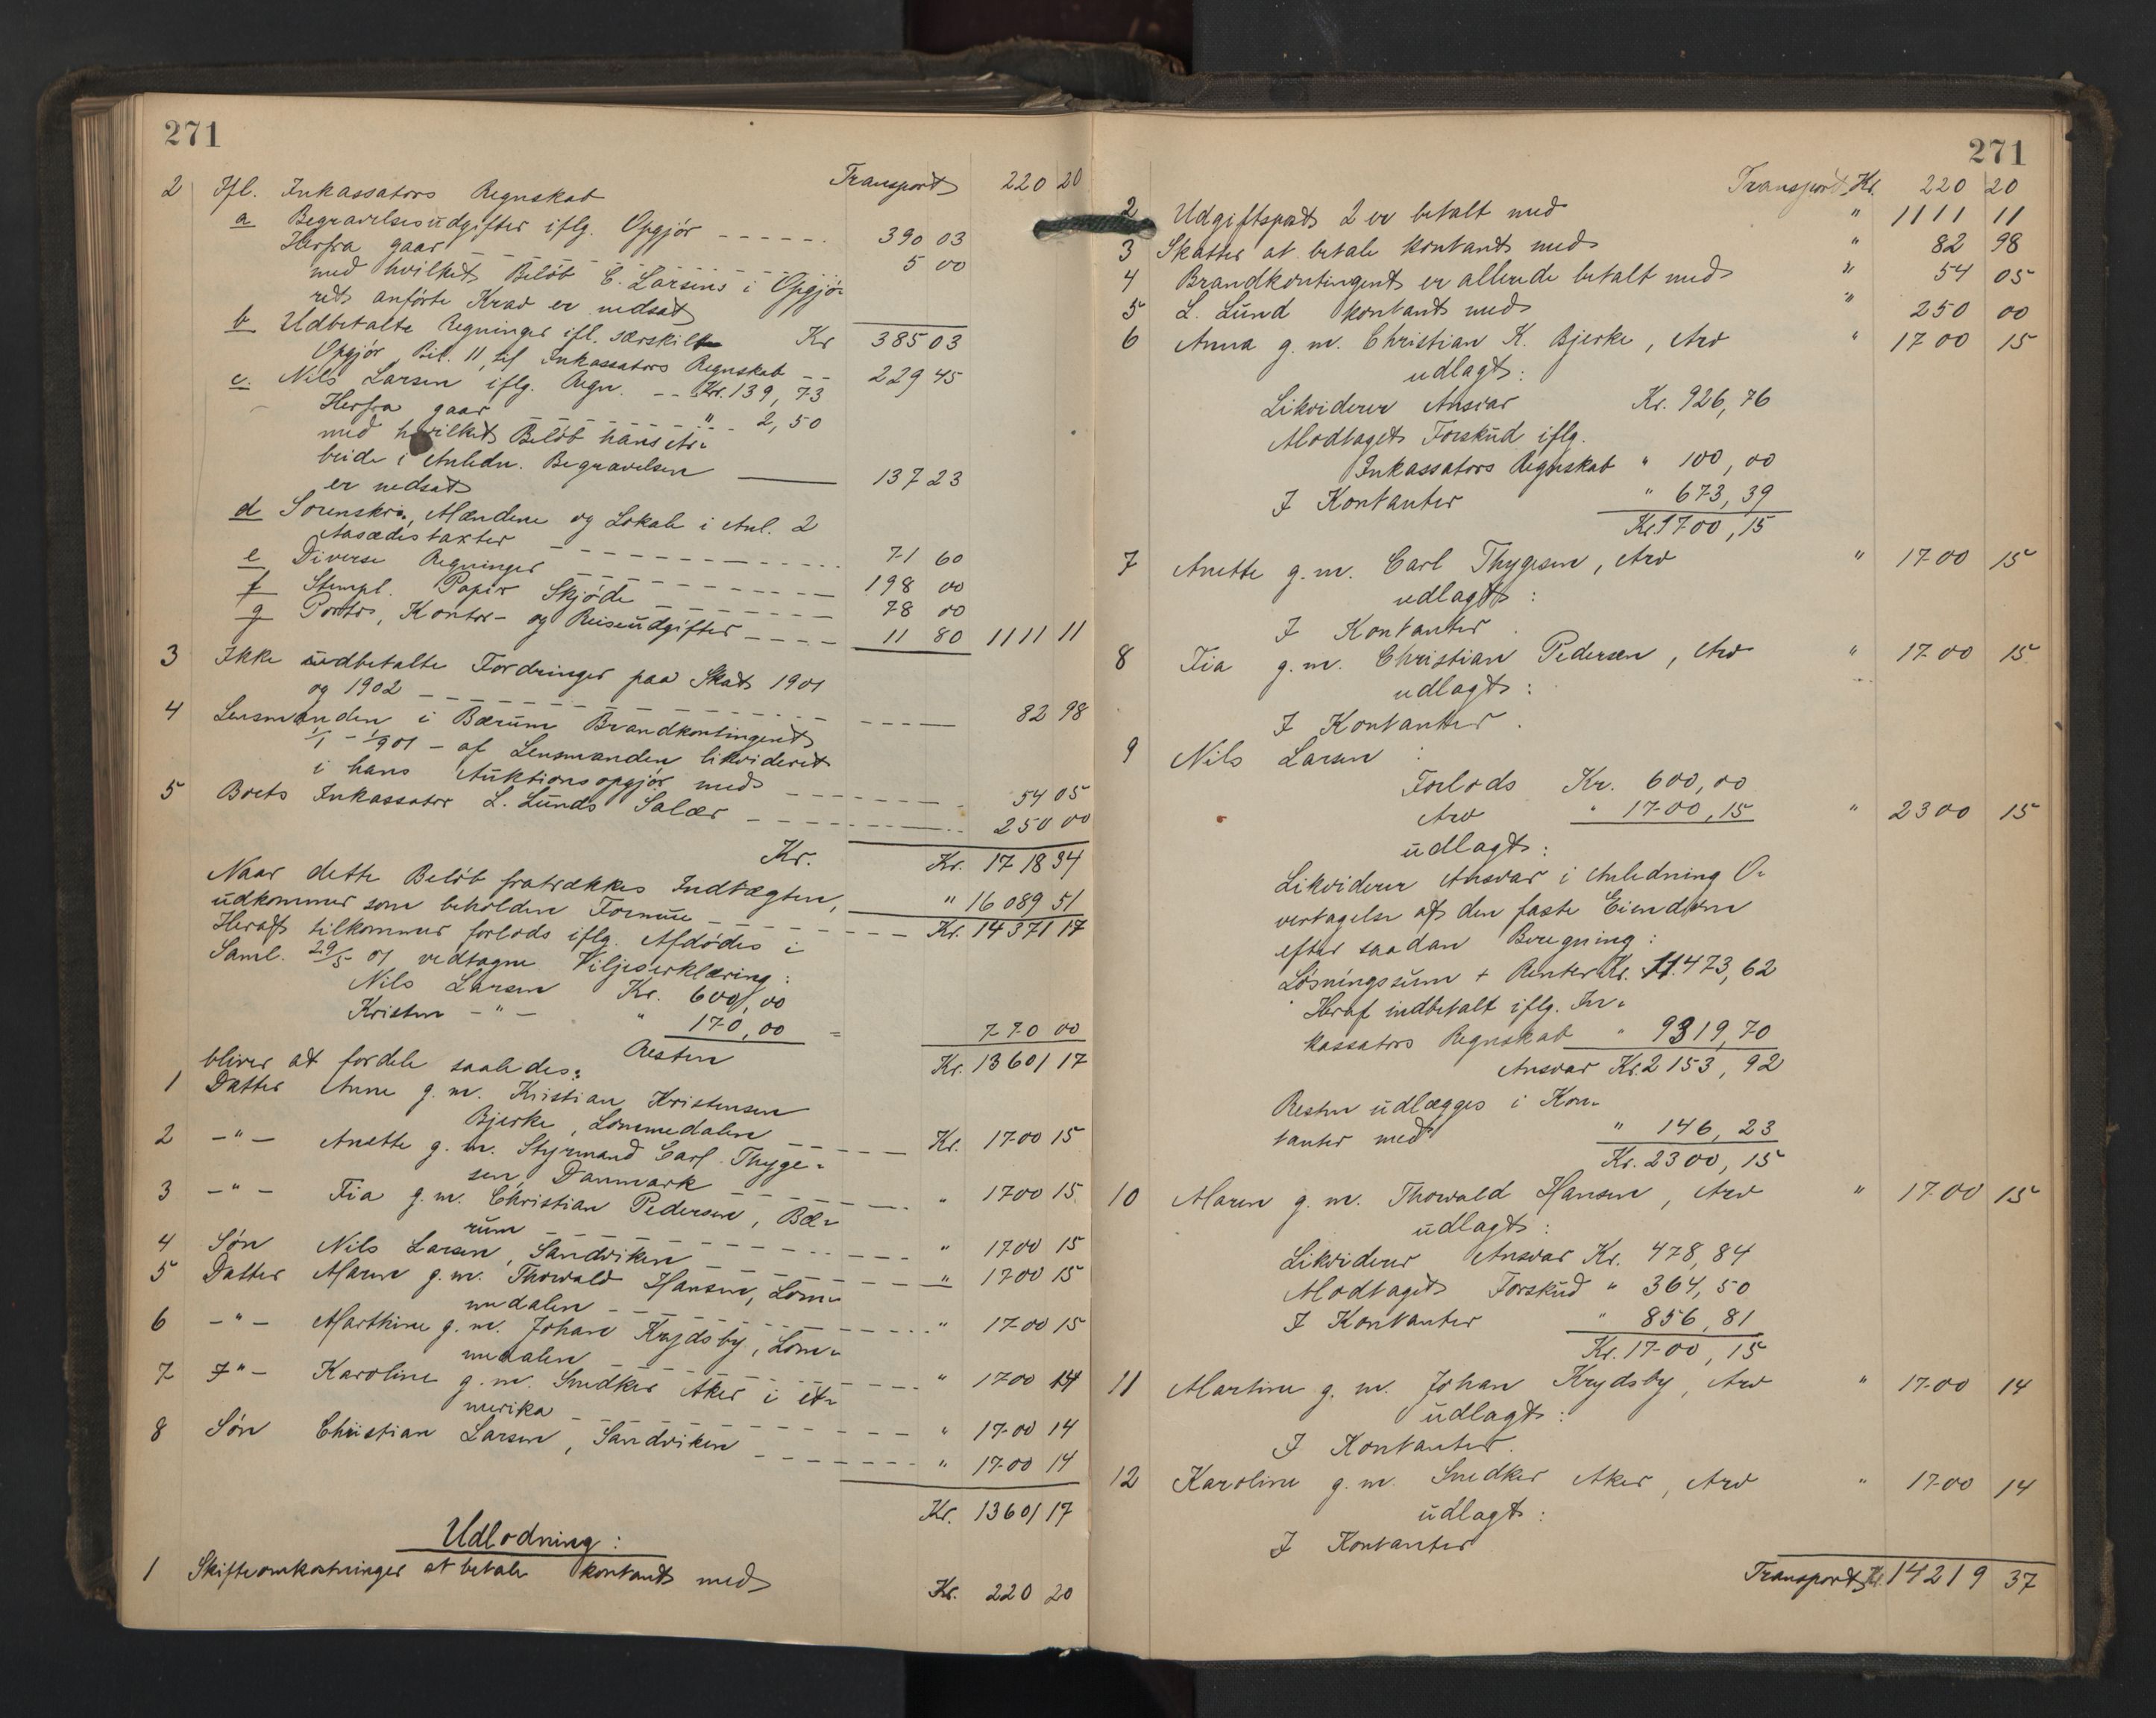 271
Transport 220 20
2 Ifl. Inkassators Regnskab
a Begravelsesudgifter iflg. Opgjör 390 03
Herfra gaar 5 00
med hvilket Belöb C. Larsens i Opgjö-
ret anförte Krav er nedsat
Kr 385 03
b Udbetalte Regninger ifl. særskilt
Opgjör, Bil. 11, til Inkassators Regnskab 229 45
c. Nils Larsen iflg. Regn. Kr. 139,73
Herfra gaar " 2,50
med hvilket Belöb hans Ar-
beide i Anledn. Begravelsen
er nedsat 137 23
d Sorenskr., Mændene og Lokale i Anl. 2
Aasædestaxter 71 60
e Diverse Regninger 198 00
f Stempl. Papir Skjöde 78 00
g Porto, Kontor- og Reiseudgifter 11 80 1111 11
3 Ikke udbetalte Fordringer paa Skat 1901
og 1902 82 98
4 Lensmanden i Bærum Brandkontingent
1/1 - 1/901 - af Lensmanden likvideret
i hans Auktionsopgjör med 54 05
5 Boets Inkassator L. Lunds Salær 250 00
Kr. Kr. 1718 34
Naar dette Belöb fratrækkes Indtægten, " 16 089 51
udkommer som beholden Formue Kr. 14371 17
Heraf tilkommer forlods iflg. Afdödes i
Saml. 29/5 01 vedtagne Viljeserklæring:
Nils Larsen Kr. 600,00
Kristen - " - " 170,00 = 770 00
Resten Kr. 13601 17
bliver at fordele saaledes:
1 Datter Anne g. m. Kristian Kristensen
Bjerke, Lommedalen Kr. 1700 15
2 - " - Anette g. m. Styrmand Carl Thyge-
sen, Danmark " 1700 15
3 - " - Fia g. m. Christian Pedersen, Bæ-
rum " 1700 15
4 Sön Nils Larsen, Sandviken " 1700 15
5 Datter Maren g. m. Thorvald Hansen, Lom-
medalen " 1700 15
6 - " - Marthine g. m. Johan Krydsby, Lom-
medalen " 1700 14
7 - " - Karoline g. m. Snedker Aker i A-
merika " 1700 14
8 Sön Christian Larsen, Sandviken " 1700 14
Kr. 13601 17
Udlodning:
1 Skifteomkostninger at betale kontant med Kr. 220 20
271
Transport Kr. 220 20
2 Udgiftspost 2 er betalt med " 1111 11
3 Skatter at betale kontant med " 82 98
4 Brandkontingent er allerede betalt med " 54 05
5 L. Lund kontant med " 250 00
6 Anna g. m. Christian K. Bjerke, Arv " 1700 15
udlagt:
Likviderer Ansvar Kr. 926,76
Modtaget Forskud iflg.
Inkassators Regnskab " 100,00
I Kontanter " 673,39
Kr. 1700,15
7 Anette g. m. Carl Thygesen, Arv " 1700 15
udlagt:
I Kontanter.
8 Fia g. m. Christian Pedersen, Arv " 1700 15
udlagt:
I Kontanter.
9 Nils Larsen:
Forlods Kr. 600,00
Arv " 1700,15 " 2300 15
udlagt:
Likviderer Ansvar i Anledning O-
vertagelse af den faste Eiendom
efter saadan Beregning:
Lösningssum + Renter Kr. 11.473,62
Heraf indbetalt iflg. In-
kassators Regnskab " 9319,70
Ansvar Kr. 2153,92
Resten udlægges i Kon-
tanter med " 146,23
Kr. 2300,15
10 Maren g. m. Thorvald Hansen, Arv " 1700 15
udlagt:
Likviderer Ansvar Kr. 478,84
Modtaget Forskud " 364,50
I Kontanter " 856,81
Kr. 1700,15
11 Martine g. m. Johan Krydsby, Arv " 1700 14
udlagt:
I Kontanter.
12 Karoline g. m. Snedker Aker, Arv " 1700 14
udlagt:
I Kontanter
Transport Kr. 14219 37